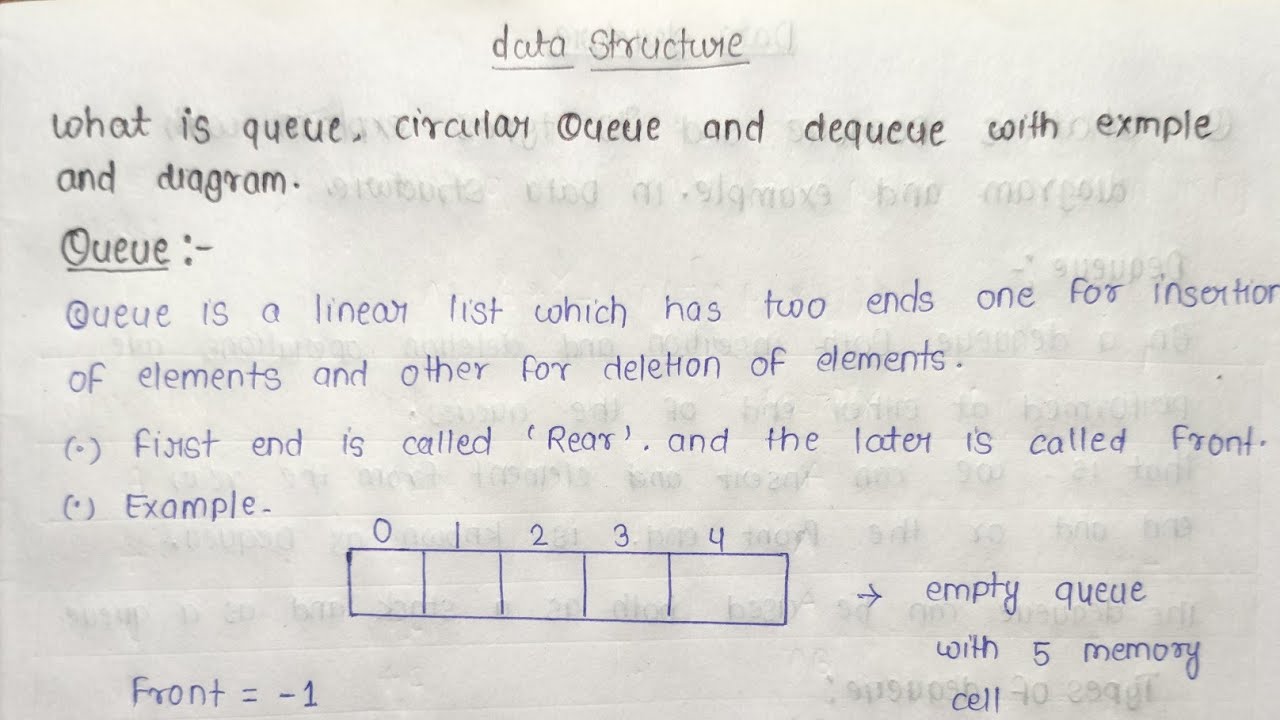 data structure
what is queue, circular Queue and dequeue with exmple
and diagram.
Queue :-
Queue is a linear list which has two ends one for insertion
of elements and other for deletion of elements.
(•) first end is called 'Rear'. and the later is called Front.
(•) Example-
0 1 2 3 4
→ empty queue
with 5 memory
cell
Front = -1